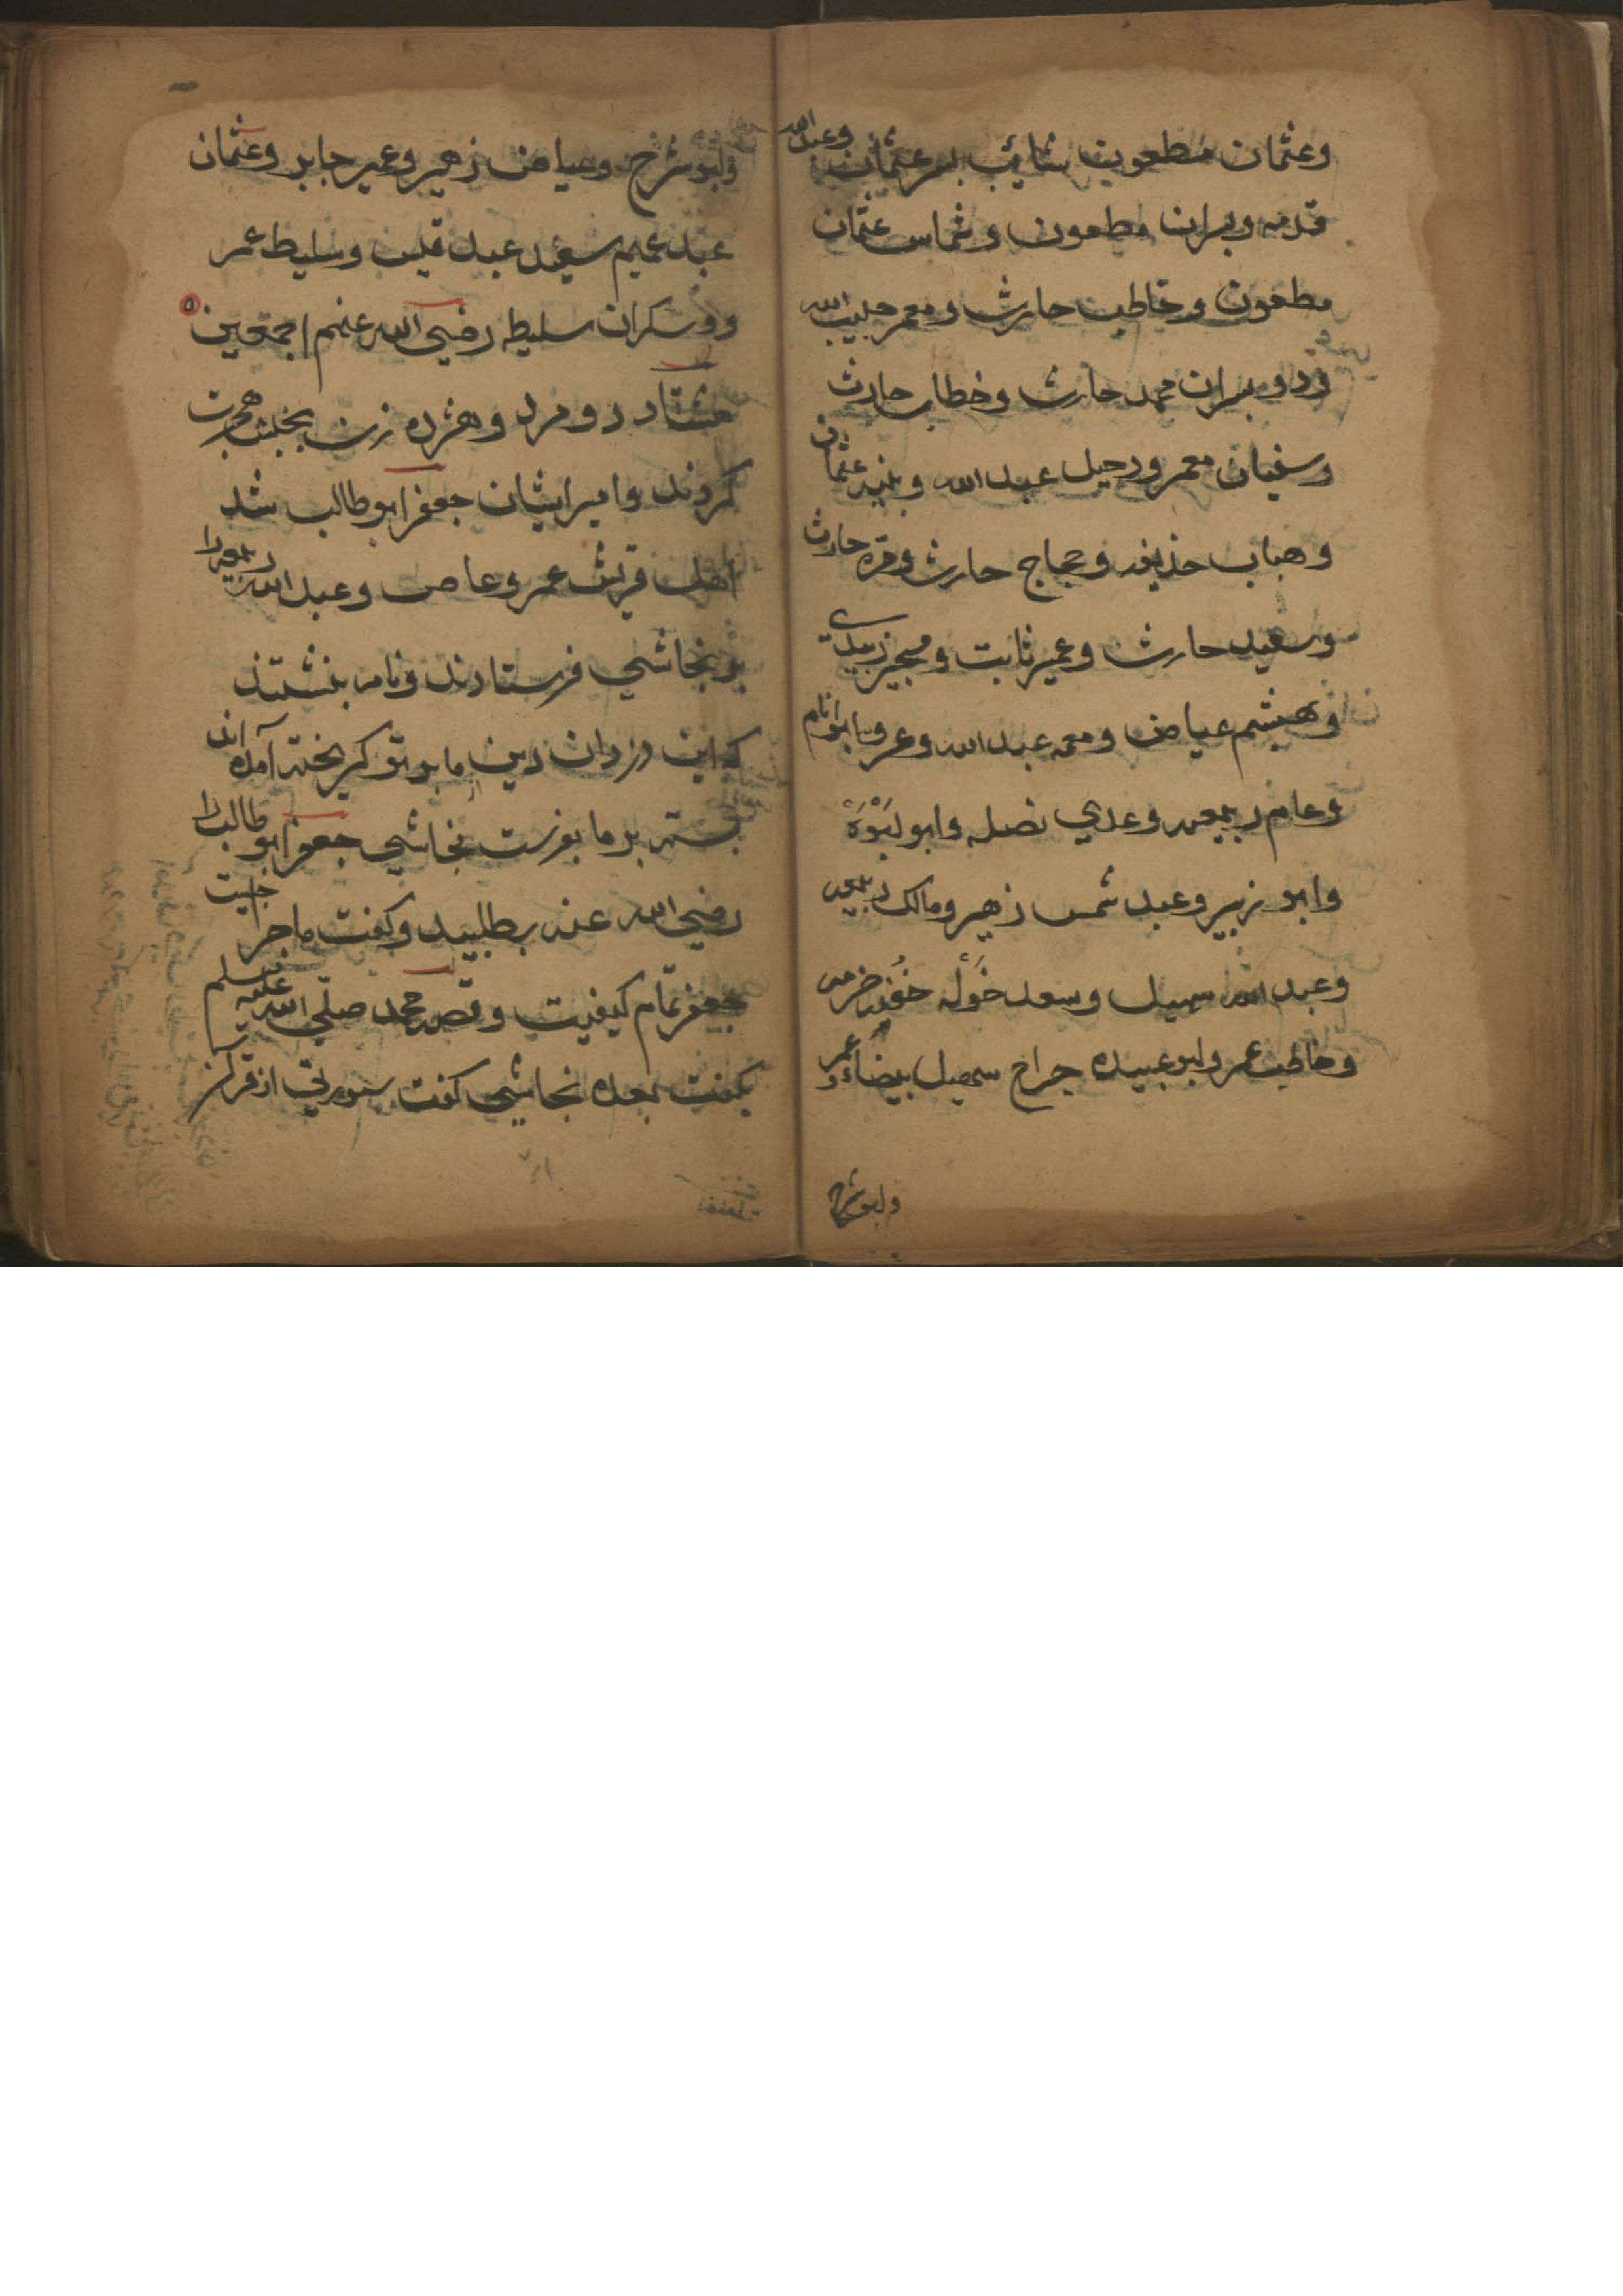 وعثمان مظعون سایب پسر عثمان وعبد الله
قدمه وپسران مطعون وشماس عثمان
مطعون وخاطب حارث ومعمر حبیب الله
ودو پسران محمد حارث وخطاب حارث
وسفیان معمر ورحیل عبد الله ونبیه عثمان
وهباب حذیفه وحجاج حارث وقره حارث
وسعید حارث وعمیر ثابت ومجیر زبیدی
وهیشم عیاض ومعمه عبد الله وعروسا ابو
وعام ربیعه وعدي نضله وابو لبوة
وابو زبیر وعبد شمس زهیر ومالک ربیعه
وعبد الله سهیل وسعد خوله
وخاطب عمر وابو عبیده جراح سهیل بیضاء وعمر
وابو شرح
وابو شرح وعیاض زهیر وعمیر جابر وعثمان
عبد عمیم سعید عبد قیس وسلیط عمر
ووسکران سلیطه رضي الله عنهم اجمعین
هشتاد دو مرد وهژده زن بحبشه هجرت
کردند وامیر ایشان جعفر ابو طالب شد
اهل قریش عمرو عاص وعبد الله ربیعه را
بر نجاشي فرستادند ونامه بنشتند
که این دزدان دین ما بر تو کریخته آمده اند
بسته بر ما بفرست نجاشي جعفر ابو طالب را
رضي الله عنه بطلبید وکفت ماجرا چیست
جعفر تمام کیفیت وقصه محمد صلّي الله علیه وسلم
بکفت بعده نجاشي کفت سورتي از قرآن